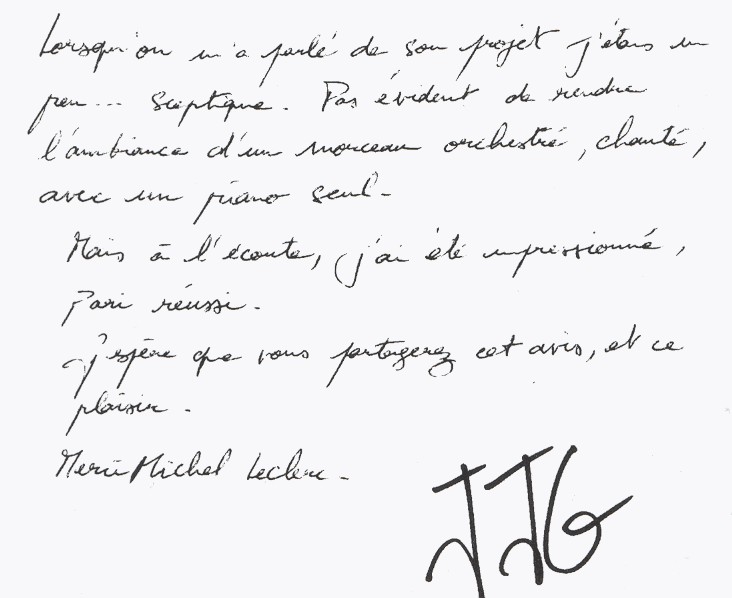 Lorsqu'on m'a parlé de son projet j'étais un
peu... Sceptique. Pas évident de rendre
l'ambiance d'un morceau orchestré, chanté,
avec un piano seul.
Mais à l'écoute, j'ai été impressionné,
Pari réussi.
J'espère que vous partagerez cet avis, et ce
plaisir.
Merci Michel Leclerc.
JJG